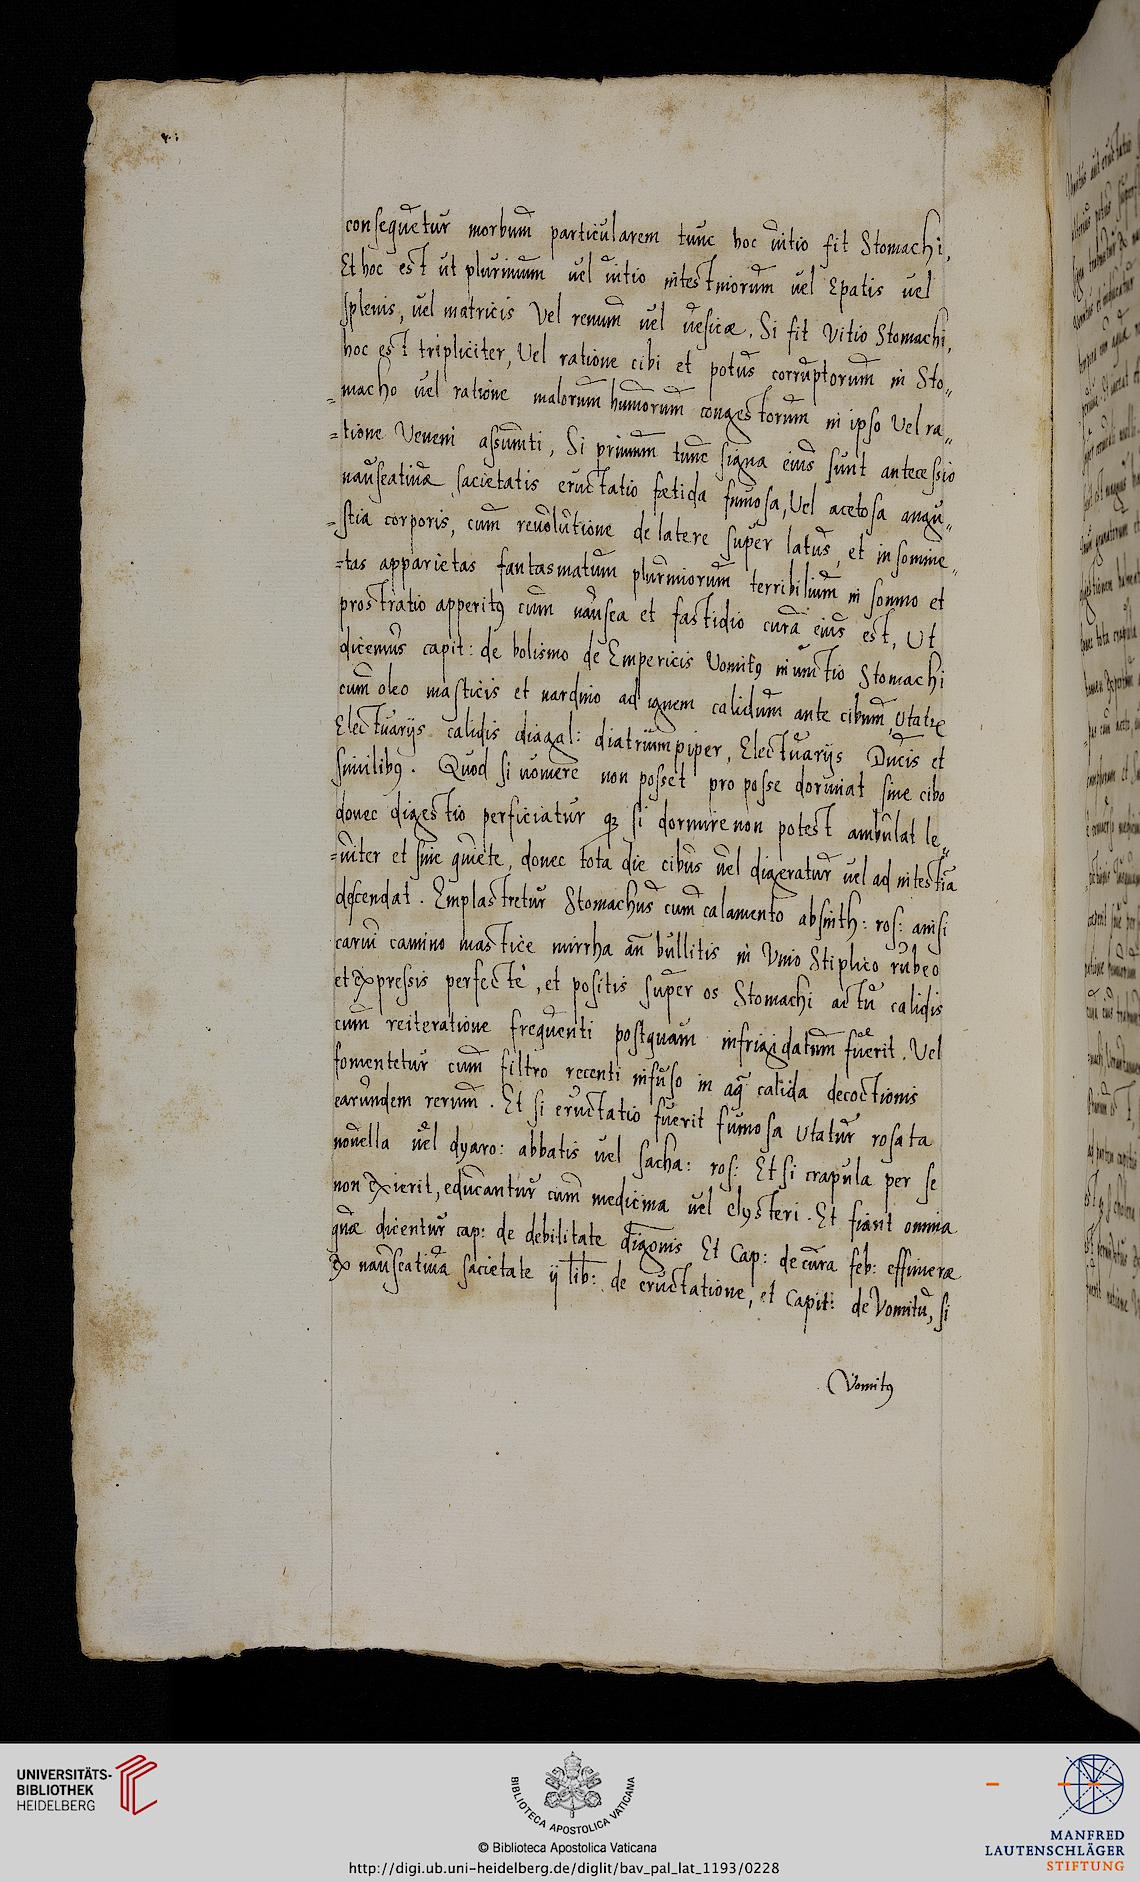 consequetur morbum particularem tunc hoc uitio fit Stomachi,
Et hoc est ut plurimum uel uitio intestiniorum uel Epatis uel
splenis, uel matricis Vel renum uel uesicæ. Si fit Vitio Stomachi,
hoc est tripliciter, Vel ratione cibi et potus corruptorum in Sto„
=macho uel ratione malorum humorum congestorum in ipso Vel ra„
=tione Veneni assumti, Si primum tunc signa eius sunt antecessio
nauseatiuæ sacietatis eructatio fætida fumosa, Vel acetosa angu„
=stia corporis, cum reuolutione de latere super latus, et in somnie„
=tas apparietas fantasmatum plurimorum terribilium in somno et
prostratio apperitꝰ cum nausea et fastidio cura eius est, Ut
dicemus capit: de bolismo de Empericis Vomitꝰ inunctio Stomachi
cum oleo masticis et nardino ad ignem calidum ante cibum, Utatur
Electuarijs calidis diagal: diatriumpiper, Electuarijs Ducis et
similibꝰ. Quod si uomere non posset pro posse dormiat sine cibo
donec digestio perficiatur qꝫ si dormire non potest ambulat le„
=uiter et sine quiete, donec tota die cibus uel digeratur uel ad intestia
descendat. Emplastretur Stomachus cum calamento absinth: ros: anisi
carui camino mastice mirrha an bullitis in Vino Stiplico rubeo
et expressis perfectè, et positis super os Stomachi actu calidis
cum reiteratione frequenti postquam infrigidatum fuerit. Vel
fomentetur cum filtro recenti infuso in aq̃ calida decoctionis
earundem rerum. Et si eructatio fuerit fumosa Utatur rosata
nouella uel dyaro: abbatis uel sacha: ros: Et si crapula per se
non exierit, educantur cum medicina uel clysteri. Et fiant omnia
quæ dicentur cap: de debilitate digonis Et Cap: de cura feb: effimeræ
ex nauseatiua sacietate ij lib: de eructatione, et Capit: de Vomitu, si
Vomitꝰ
UNIVERSITÄTS-
BIBLIOTHEK
HEIDELBERG
BIBLIOTECA APOSTOLICA VATICANA
© Biblioteca Apostolica Vaticana
http://digi.ub.uni-heidelberg.de/diglit/bav_pal_lat_1193/0228
MANFRED
LAUTENSCHLÄGER
STIFTUNG